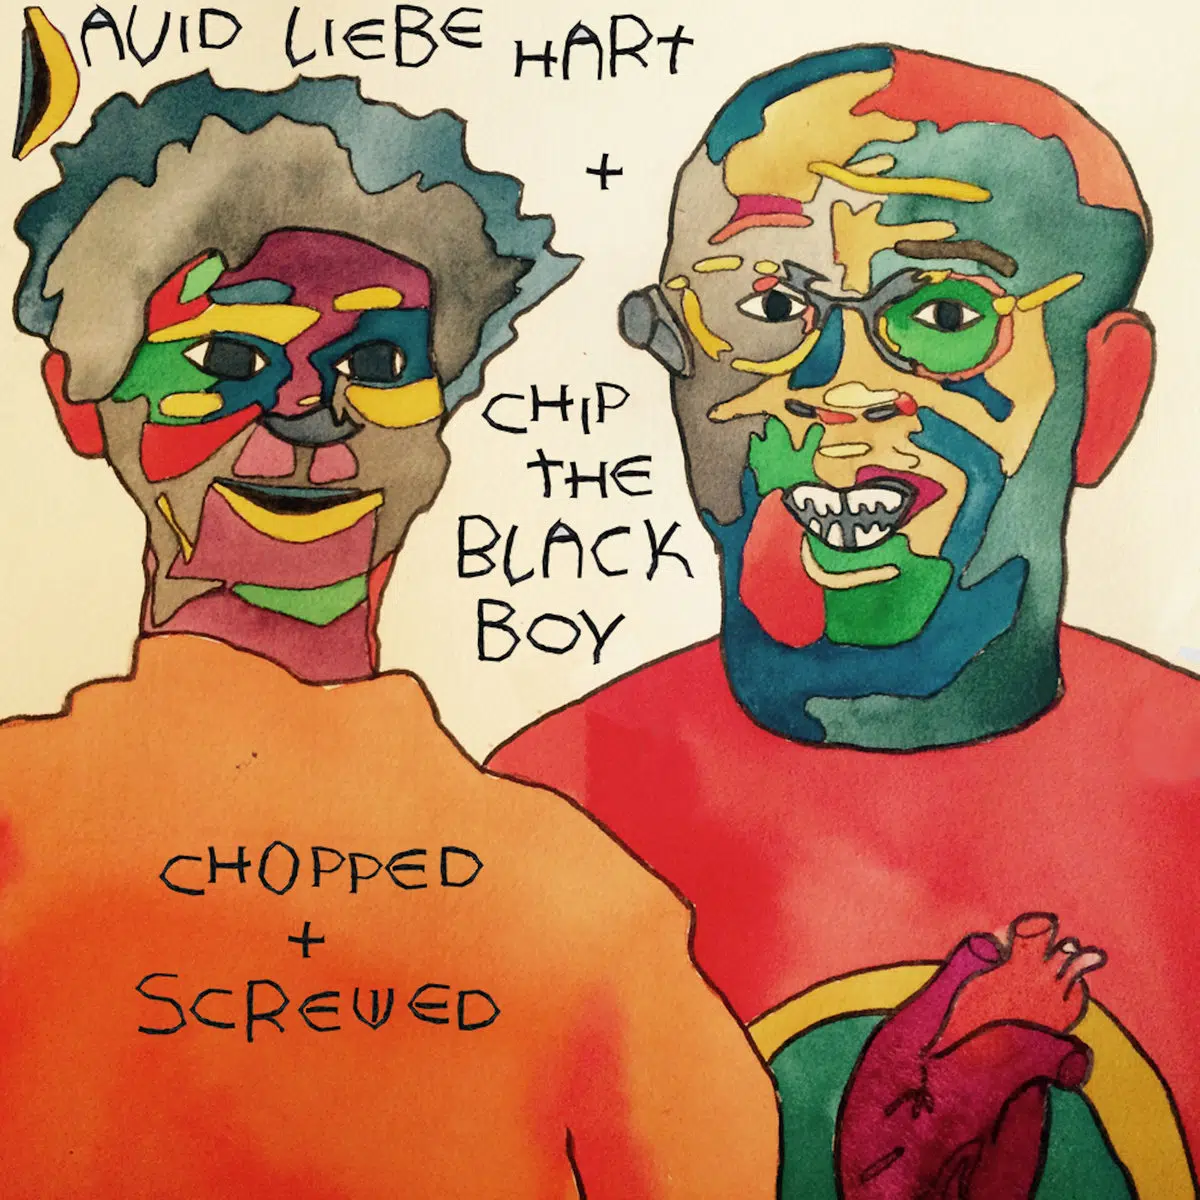 DAVID LIEBE HART
+
CHIP
THE
BLACK
BOY
CHOPPED
+
SCREWED